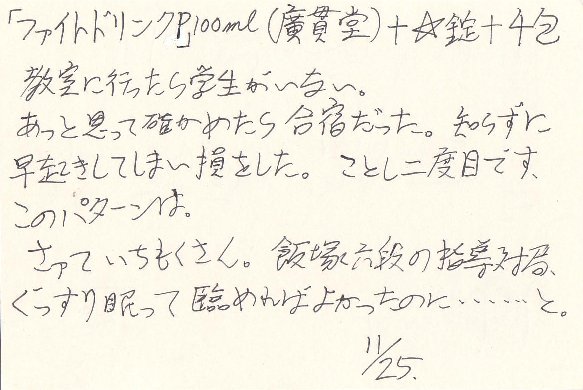 「ファイトドリンクP」100ml(廣貫堂)+☆錠+4包
教室に行ったら学生がいない。
あっと思って確かめたら合宿だった。知らずに
早起きしてしまい損をした。ことし二度目です、
このパターンは。
さっていちもくさん。飯塚六段の指導対局、
ぐっすり眠って臨めればよかったのに……と。
11/25.